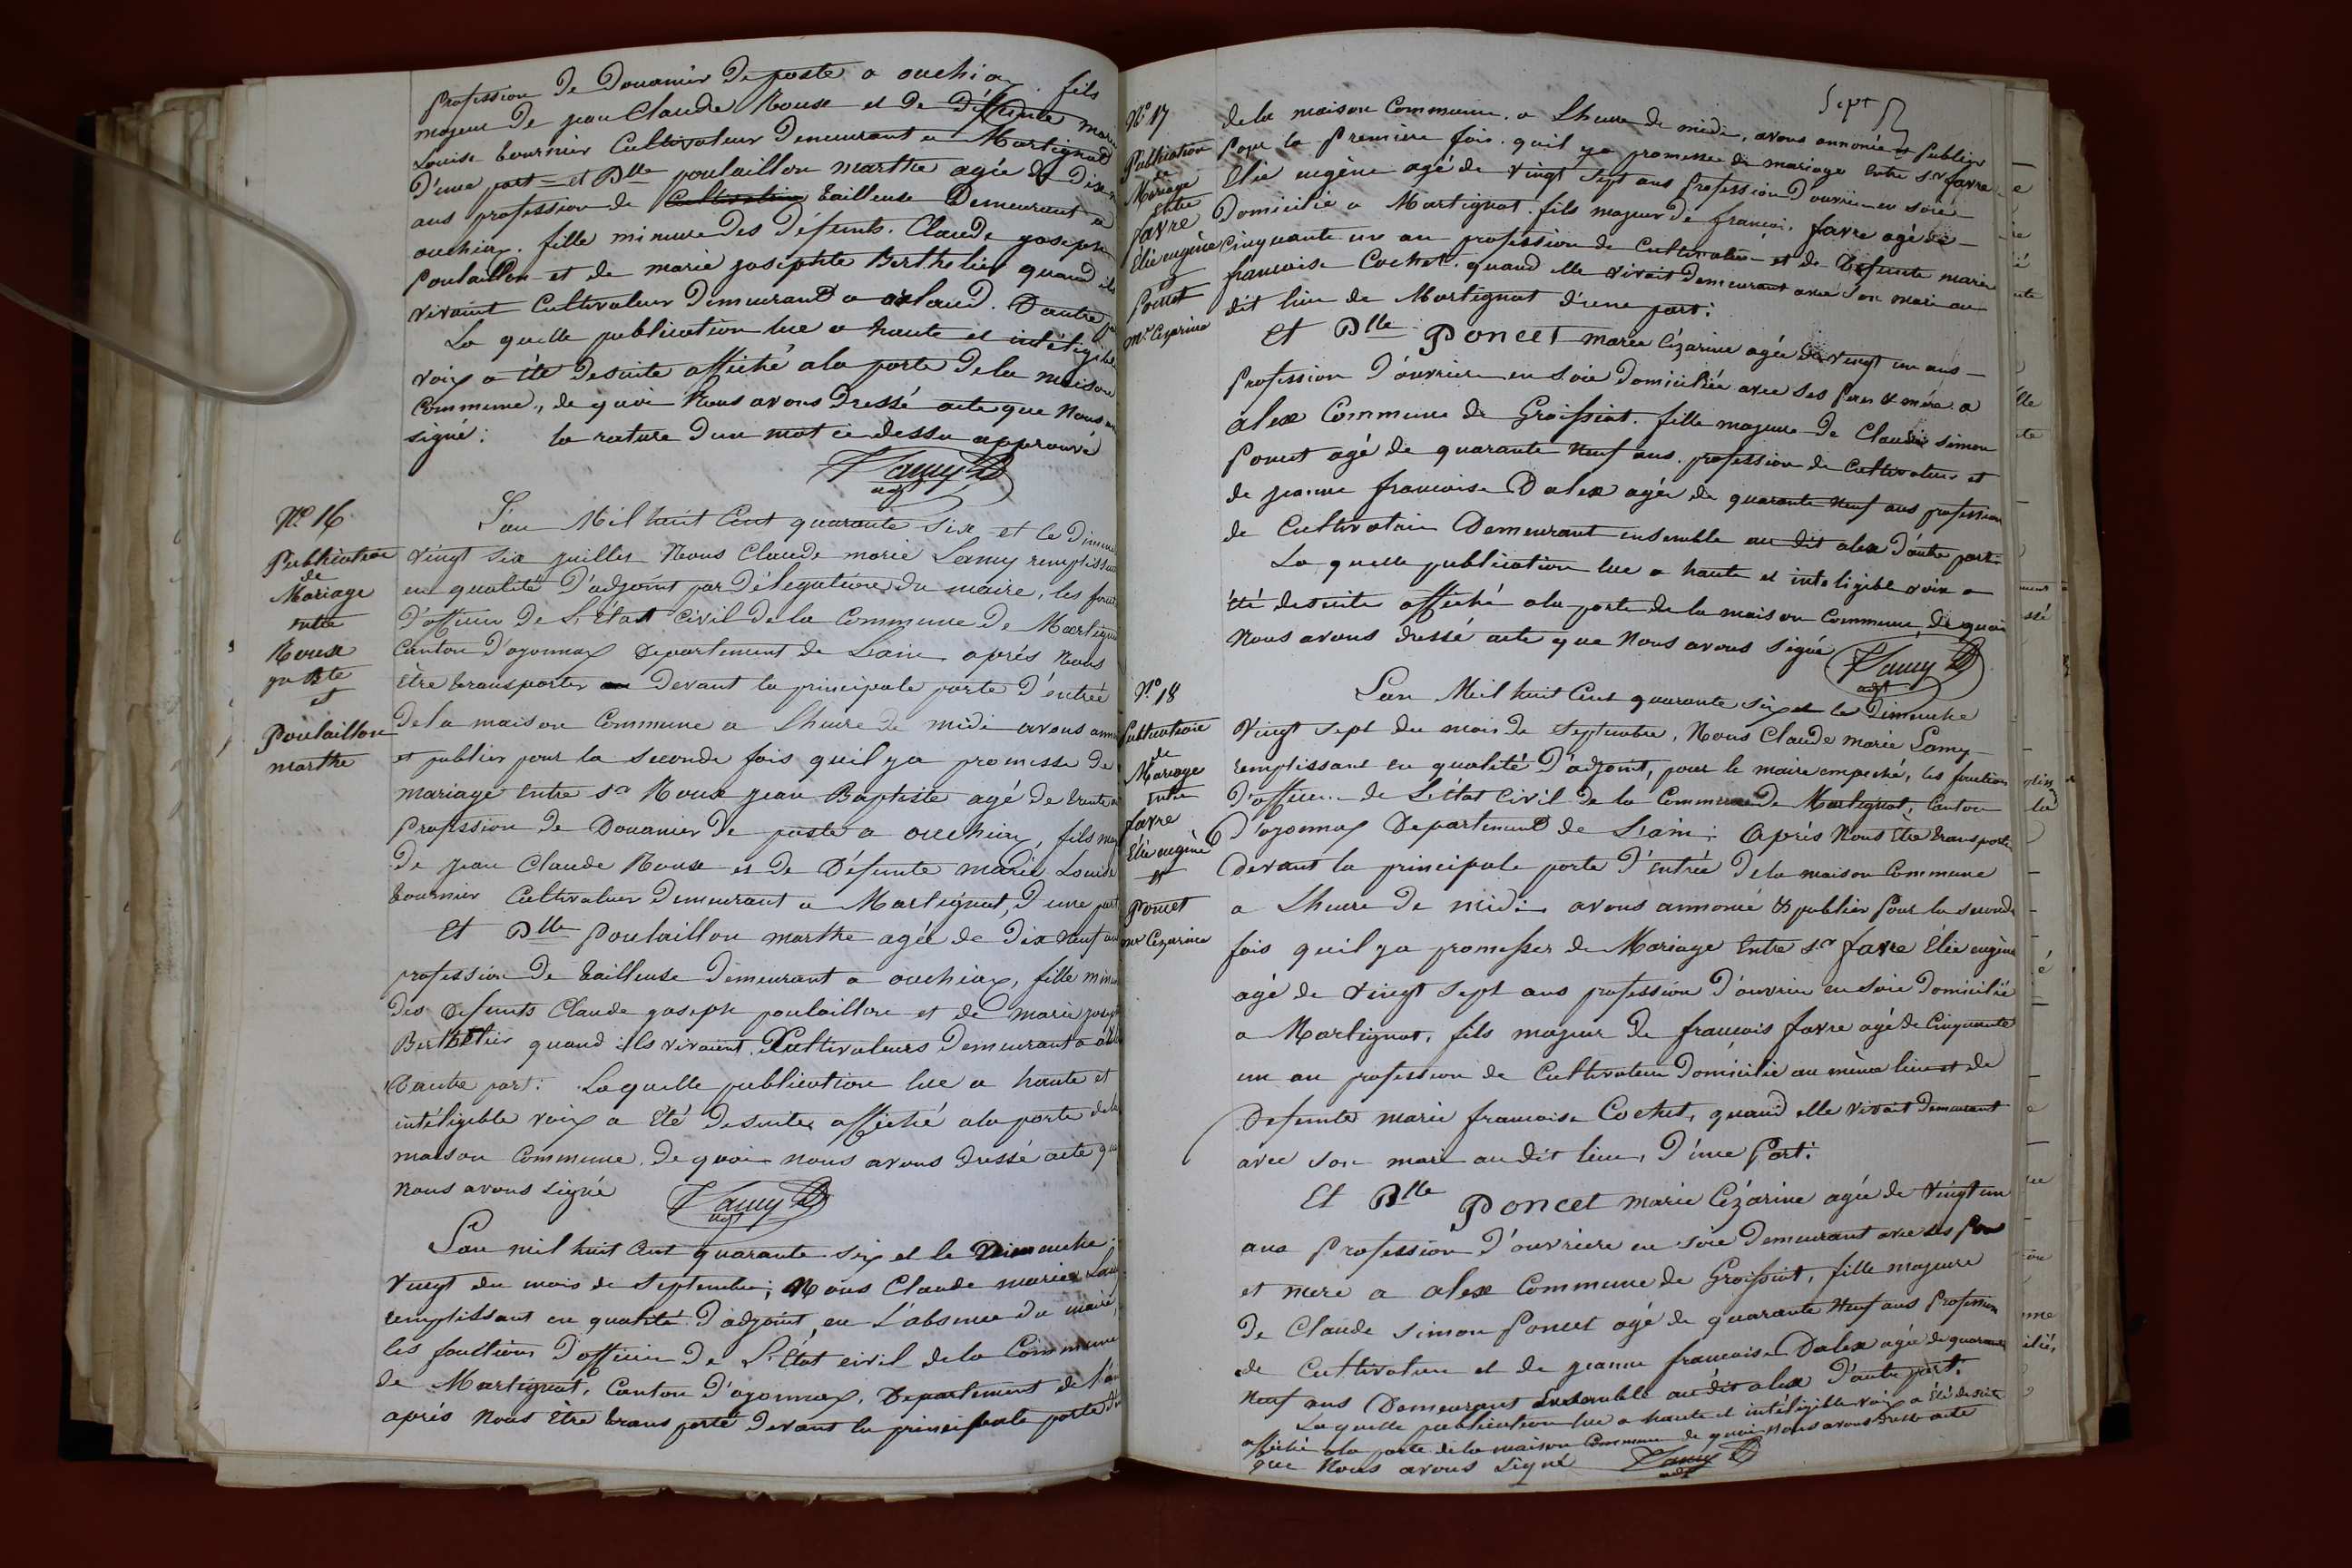 profession de Douanier de poste a ouchiax fils
majeur de jean Claude Roux et de Défunte marie
Louise tournier Cultivateur demeurant a Martignat
D'une part et Dlle poulaillon marthe agée de Dix
ans profession de Cultivatrice tailleuse Demeurant a
ouchiax. fille mineure des Défunts. Claude joseph
Poulaillon et de marie josephte Berthelier quand ils
vivaint Cultivateur demeurand a D'autre
La quelle publication lue a haute et intéligible
voix a été desuite affiché ala porte de la maison
Commune, de quoi Nous avons Dressé acte que Nous
signé: la rature d'un mot ci dessu approuvé
Lamy
adjt
No 16
Publication
de
Mariage
entre
Roux
jn Bte
et
Poulaillon
marthe
L'an Mil huit Cent quarante six et le Dimanche
vingt six juillet Nous Claude marie Lamy remplissant
en qualité D'adjoint par Délegation du maire, les
D'officier de L'Etat Civil de la Commune de Martignat
Canton D'oyonnax Departement de L'ain aprés Nous
être transporter devant la principale porte D'entrée
de la maison Commune a Lheure de midi avons
et publier pour la seconde fois quil ya promesse de
mariage entre sr Roux jean Baptiste agé de trente
Profession de Douanier de poste a ouchiax, fils
de jean Claude Roux et de Défunte marie Louise
tournier Cultivateur demeurant a Martignat, d'une part
Et Dlle Poulaillon marthe agée de Dix neuf ans
profession de tailleuse demeurant a ouchiax, fille
des Defunts Claude joseph poulaillon et de marie
Berthelier quand ils vivaient Cultivateurs Demeurant a
D'autre part: Laquelle publication lue a haute et
intéligible voix a été desuite affiché ala porte de la
maison Commune. de quoi nous avons dressé acte que
Nous avons signé
Lamy
adjt
L'an mil huit cent quarante-six et le Dimanche
vingt du mois de septembre; Nous Claude marie
remplissant en qualité d'adjoint, en L'absence du maire,
les fonctions d'officier de L'Etat civil de la Commune
de Martignat, Canton d'oyonnax, Departement de
aprés Nous être transporté devant la principale porte
Sept
No 17
Publication
de
Mariage
entre
favre
Elie eugène
et
Poncet
me Cezarine
de la maison Commune. a Lheure de midi, avons annoncée et Publier
Pour la Premiere fois. quil ya promesse de mariage entre sr favre
Elie eugène agé de vingt sept ans Profession D'ouvrier en soie
Domicilié a Martignat. fils majeur de françois favre agé de
Cinquante un an profession de Cultivateur et de Défunte marie
francoise Cochet. quand elle vivait demeurant avec son mari au
dit lieu de Martignat d'une part:
Et Dlle Poncet marie Cézarine agée de vingt un ans
Profession D'ouvriere en soie domiciliée avec ses Pere & mére a
alex Commune de Groissiat. fille majeure de Claude simon
Poncet agé de quarante Neuf ans. profession de Cultivateur et
de jeanne francoise Dalex agée de quarante Neuf ans profession
de Cultivatrice Demeurant ensemble au dit alex D'autre part:
La quelle publication lue a haute et inteligible voix a
été desuite affiché ala porte de la maison Commune, de quoi
Nous avons dressé acte que Nous avons signé
Lamy
adjt
No 18
Publication
de
Mariage
entre
favre
Elie eugène
et
Poncet
me Cezarine
L'an Mil huit Cent quarante six et le Dimanche
Vingt sept du mois de septembre, Nous Claude marie Lamy
remplissant en qualité D'adjoint, pour le maire empeché, les fonction
D'officier de L'état Civil de la Commune de Martignat, Canton
D'oyonnax Departement de L'ain: Aprés Nous être transporter
devant la principale porte D'entrée de la maison Commune
a Lheure de Midi avons annoncé & publier Pour la seconde
fois quil ya promesses de Mariage Entre sr favre Elie eugène
agé de vingt sept ans profession D'ouvrier en soie Domicilié
a Martignat, fils majeur de francois favre agé de Cinquante
un an profession de Cultivateur Domicilié au même lieu et de
Defunte marie francoise Cochet, quand elle vivait demeurant
avec son mari au dit lieu, D'une Part:
Et Dlle Poncet marie Cézarine agée de Vingt un
ans Profession D'ouvriere en soie Demeurant avec ses Pere
et mere a alex Commune de Groissiat, fille majeure
de Claude simon Poncet agé de quarante Neuf ans Profession
de Cultivateur et de jeanne francoise Dalex agée de quarante
Neuf ans Demeurant Ensemble au dit alex D'autre part.
Laquelle publication lue a haute et intéligible voix a été desuite
affiché ala porte de la maison Commune de quoi Nous avons dressé acte
que Nous avons signé
Lamy
adjt